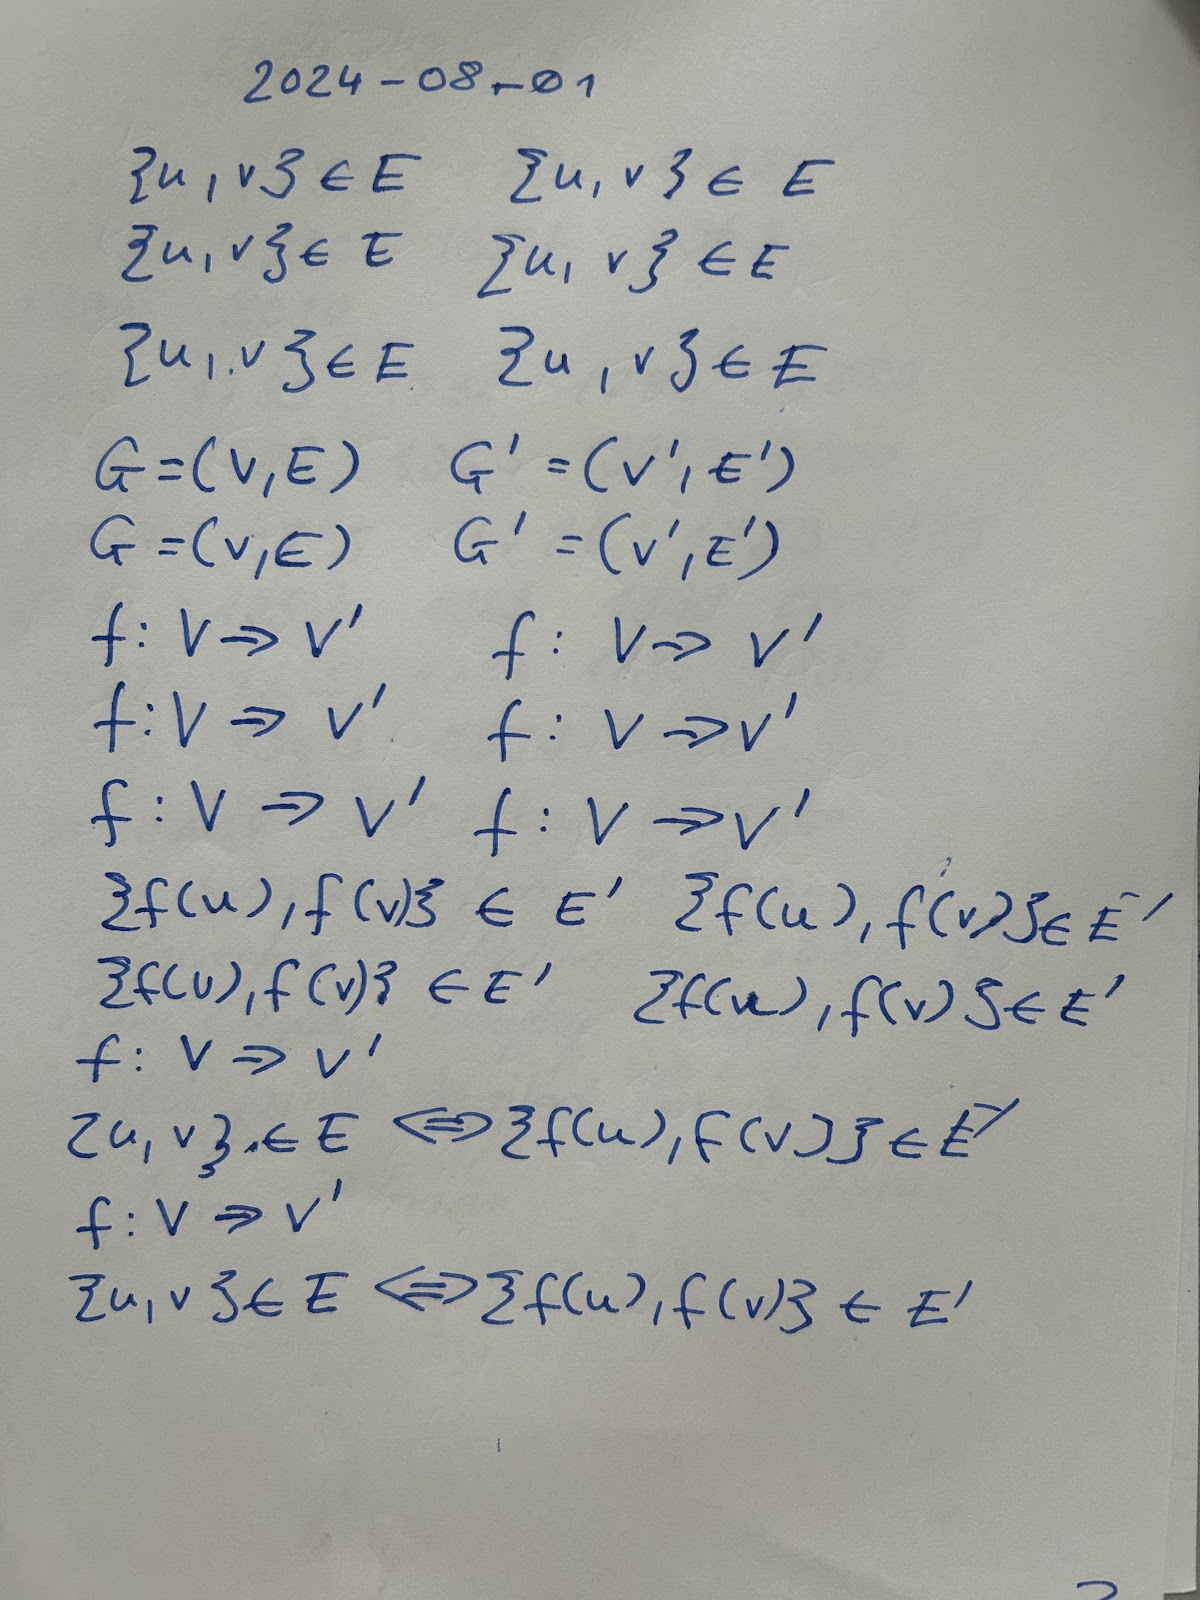 2024-08-01
{u, v} ∈ E {u, v} ∈ E
{u, v} ∈ E {u, v} ∈ E
{u, v} ∈ E {u, v} ∈ E
G = (V, E) G' = (V', E')
G = (V, E) G' = (V', E')
f: V ⇒ V' f: V ⇒ V'
f: V ⇒ V' f: V ⇒ V'
f: V ⇒ V' f: V ⇒ V'
{f(u), f(v)} ∈ E' {f(u), f(v)} ∈ E'
{f(u), f(v)} ∈ E' {f(u), f(v)} ∈ E'
f: V ⇒ V'
{u, v} ∈ E ⇔ {f(u), f(v)} ∈ E'
f: V ⇒ V'
{u, v} ∈ E ⇔ {f(u), f(v)} ∈ E'